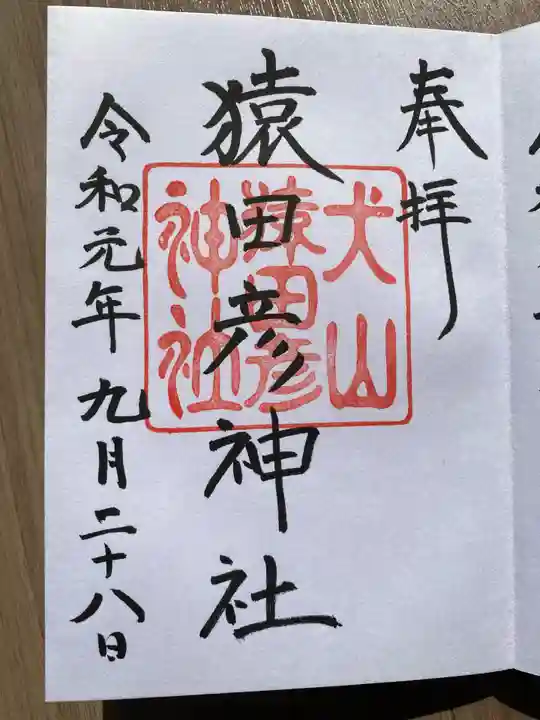 奉拝
猿田彦神社
令和元年九月二十八日
犬山
猿田彦
神社